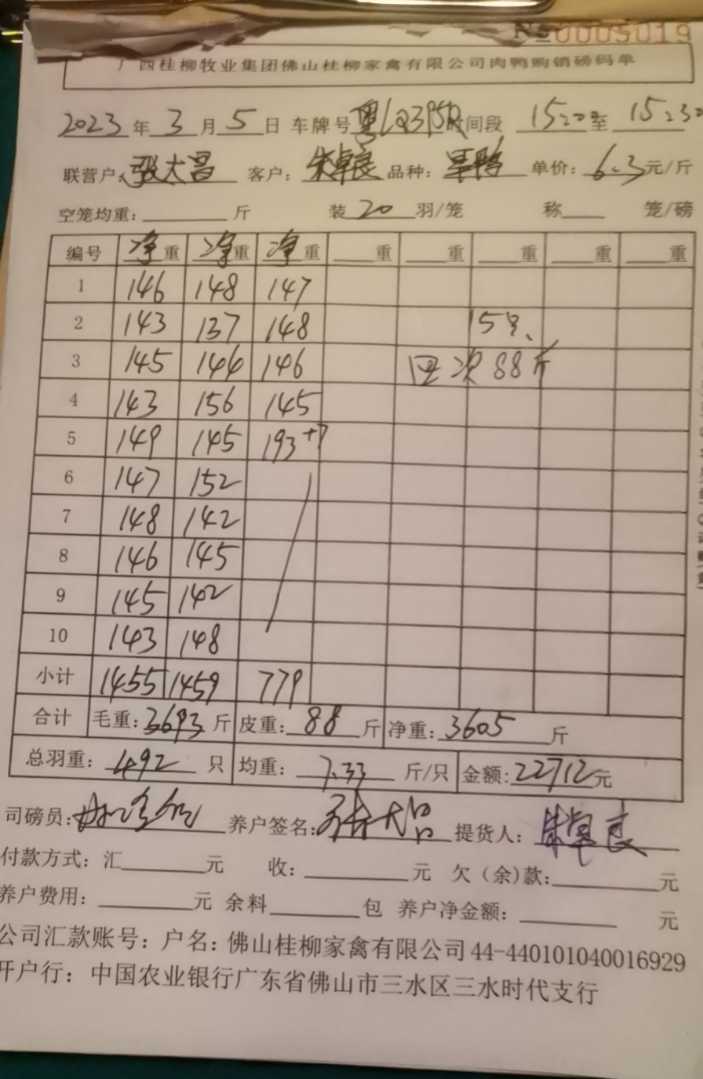 №0005019
广西桂柳牧业集团佛山桂柳家禽有限公司肉鸭购销磅码单
2023年3月5日 车牌号 时间段 15:20至15:30
联营户: 张大昌 客户: 朱卓良 品种: 单价: 6.3元/斤
空笼均重: 斤 装20羽/笼 称 笼/磅
编号 净重 净重 净重 重 重 重 重 重
1 146 148 147
2 143 137 148 15号、
3 145 144 146 四次88斤
4 143 156 145
5 149 145 193+7
6 147 152
7 148 142
8 146 145
9 145 142
10 143 148
小计 1455 1459 779
合计 毛重: 3693斤 皮重: 88斤 净重: 3605斤
总羽重: 492只 均重: 7.33斤/只 金额: 22712元
司磅员: 养户签名: 张大昌 提货人: 朱卓良
付款方式: 汇 元 收: 元 欠(余)款: 元
养户费用: 元 余料 包 养户净金额: 元
公司汇款账号: 户名: 佛山桂柳家禽有限公司44-440101040016929
开户行: 中国农业银行广东省佛山市三水区三水时代支行